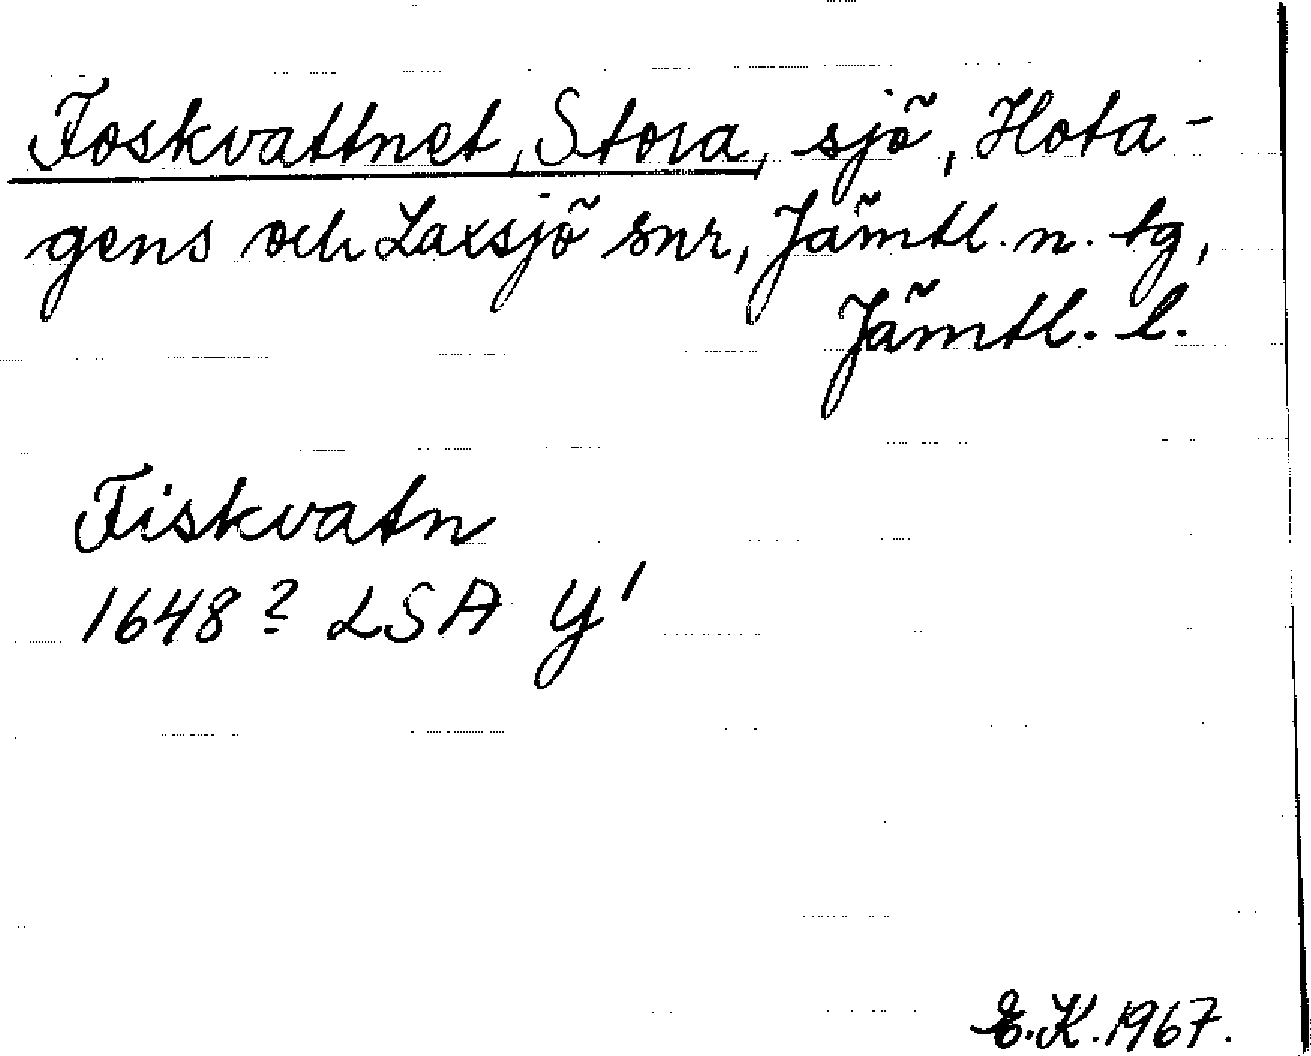 Foskvattnet, Stora, sjö, Hota-
gens och Laxsjö snr, Jämtl. n. tg,
Jämtl. l.
Fiskvatn
1648? LSA Y1
E.K. 1967.